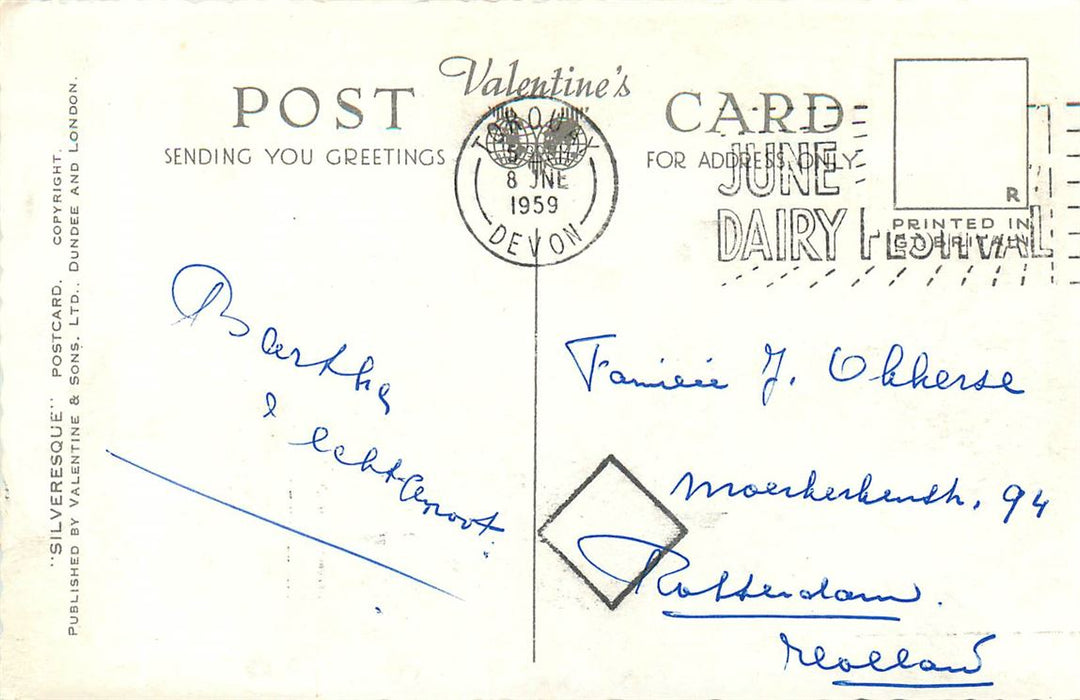 Valentine's
POST CARD
SENDING YOU GREETINGS
FOR ADDRESS ONLY
TORQUAY
8 JNE
1959
DEVON
JUNE
DAIRY FESTIVAL
R
PRINTED IN
GT. BRITAIN
"SILVERESQUE" POSTCARD. COPYRIGHT.
PUBLISHED BY VALENTINE & SONS, LTD., DUNDEE AND LONDON.
Bartha
& Echtgenoot.
Familie J. Okkerse
94
Rotterdam.
Holland